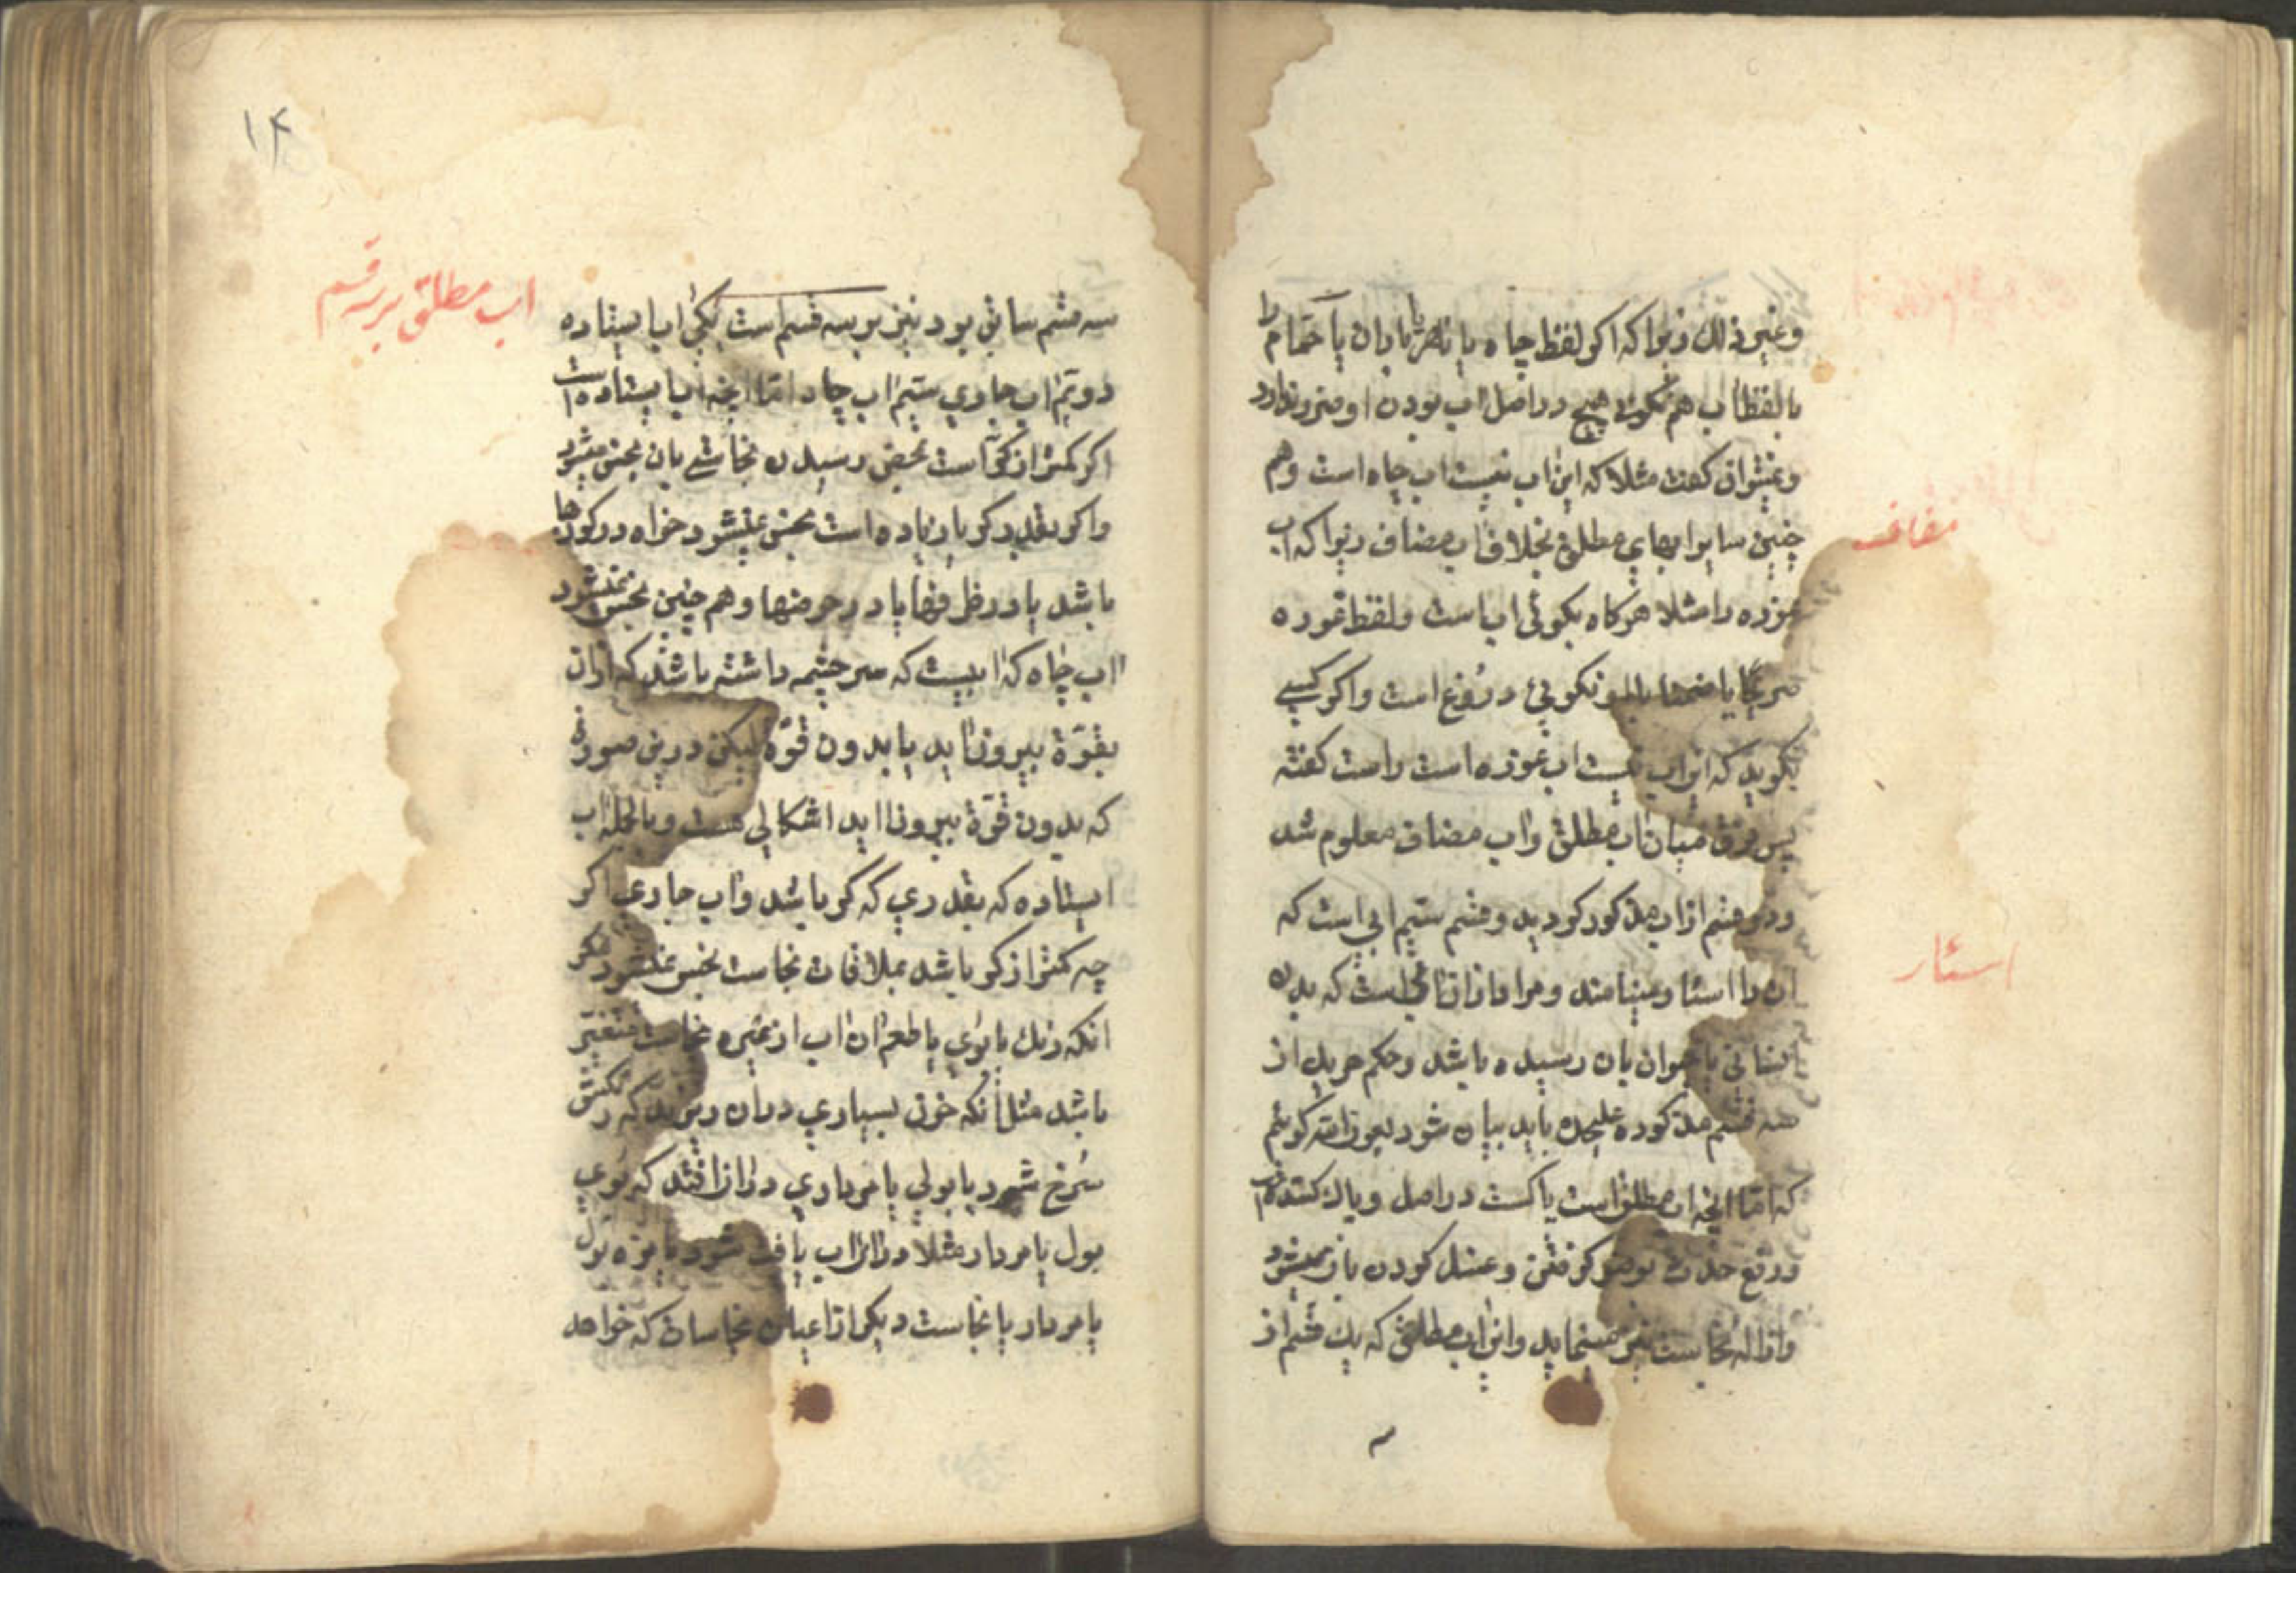 وغیر ذلك زیرا كه اكر لفظ چاه یا نهر یا باران یا حمام را
با لفظ اب هم نكوئی هیچ در اصل اب بودن او ضرر ندارد
ونمیتوان كفت مثلا كه این اب نیست اب چاه است وهم
چنین سایر ابهای مطلق بخلاف اب مضاف زیرا كه اب
مضاف
غوره را مثلا هركاه بكوئی اب است ولفظ غوره
صریحا یا ضمنا نكوئی دروغ است واكر كسی
بكوید كه این اب نیست اب غوره است راست كفته
پس فرق میان اب مطلق واب مضاف معلوم شد
ودو قسم از اب مذكور كردید وقسم سیم ابی است كه
اسئار
ان را اسئار مینامند ومراد از ان ابی است كه بدن
انسانی یا حیوان بان رسیده باشد وحكم هر یك از
سه قسم مذكوره علیحده باید بیان شود پس كوئیم
كه اما انچه اب مطلق است پاكست در اصل وپاك كننده
ورفع حدث بوضو كرفتن وغسل كردن باو میشود
وازاله نجاست نیز مینماید واین اب مطلق كه یك قسم از
۱۴
اب مطلق بر سه قسم
سه قسم سابق بود نیز بر سه قسم است یكی اب ایستاده
دویم اب جاری سیم اب چاه اما انچه اب ایستاده است
اكر كمتر از كر است بمحض رسیدن نجاستی بان نجس میشود
واكر بقدر كر یا زیاده است نجس نمیشود خواه در كودها
باشد یا در ظرفها یا در حوضها وهم چنین نجس نمیشود
اب چاه كه ابیست كه سر چشمه داشته باشد كه از ان
بقوّة بیرون اید یا بدون قوّة لیكن درین صورة
كه بدون قوّة بیرون اید اشكالی هست وبالجمله اب
ایستاده كه بقدری كه كر باشد واب جاری اكر
چه كمتر از كر باشد بملاقات نجاست نجس نمیشود مكر
انكه رنك یا بوی یا طعم ان اب از نجاست متغیر
باشد مثل انكه خون بسیاری در ان بریزند كه رنكش
سرخ شود یا بولی یا مرداری در ان افتد كه بوی
بول یا مردار مثلا در ان اب یافت شود یا مزه بول
یا مردار یا نجاست دیكر از اعیان نجاسات كه خواهد